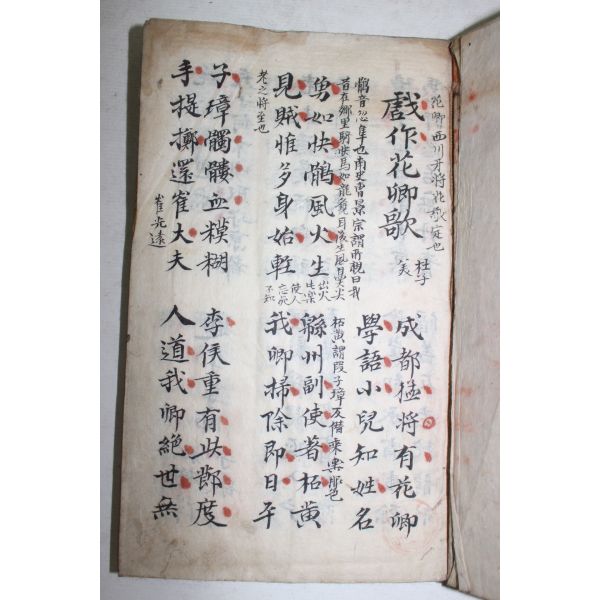 花卿西川牙將花敬定也
戲作花卿歌
杜子
美
成都猛將有花卿
學語小兒知姓名
鶻音忽隼也南史曹景宗謂所親曰我
昔在鄉里騎快馬如龍覺耳後生風鼻尖
出火
此樂
使人
忘死
不知
老之將至也
勇如快鶻風火生
柘黃謂段子璋反僭乘輿服色
緜州副使著柘黃
見賊惟多身始輕
我卿掃除即日平
子璋髑髏血糢糊
手提擲還崔大夫
崔光遠
李侯重有此節度
人道我卿絕世無